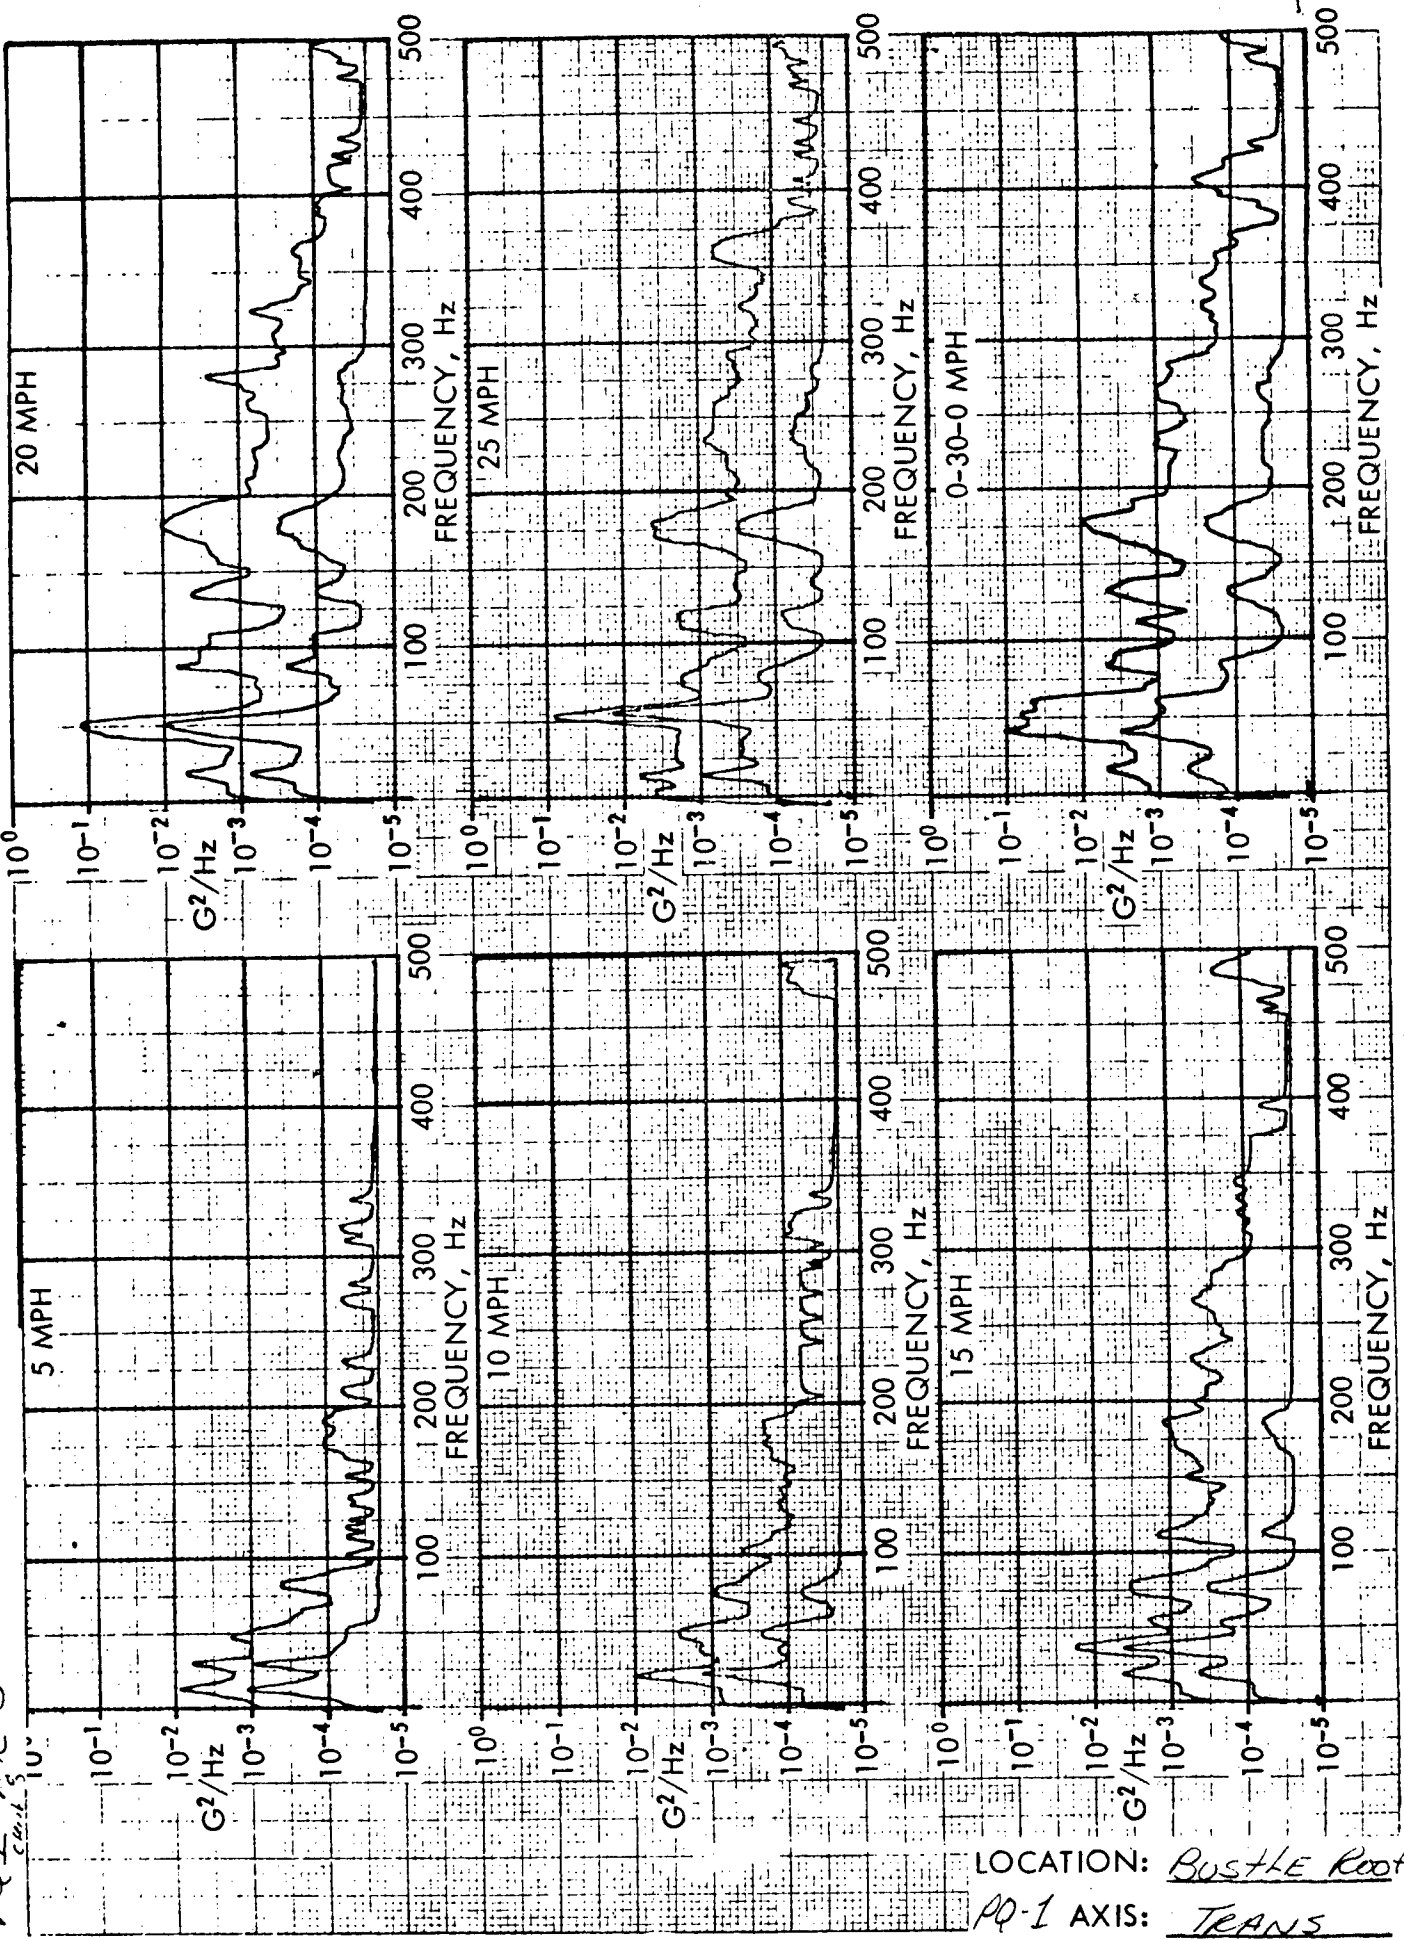 5 MPH
10⁻¹
10⁻²
G²/Hz
10⁻³
10⁻⁴
10⁻⁵
100
200
300
400
500
FREQUENCY, Hz
10 MPH
10⁰
10⁻¹
10⁻²
G²/Hz
10⁻³
10⁻⁴
10⁻⁵
100
200
300
400
500
FREQUENCY, Hz
15 MPH
10⁰
10⁻¹
10⁻²
G²/Hz
10⁻³
10⁻⁴
10⁻⁵
100
200
300
400
500
FREQUENCY, Hz
20 MPH
10⁰
10⁻¹
10⁻²
G²/Hz
10⁻³
10⁻⁴
10⁻⁵
100
200
300
400
500
FREQUENCY, Hz
25 MPH
10⁰
10⁻¹
10⁻²
G²/Hz
10⁻³
10⁻⁴
10⁻⁵
100
200
300
400
500
FREQUENCY, Hz
0-30-0 MPH
10⁰
10⁻¹
10⁻²
G²/Hz
10⁻³
10⁻⁴
10⁻⁵
100
200
300
400
500
FREQUENCY, Hz
LOCATION: BUSTLE ROOF
PQ-1 AXIS: TRANS